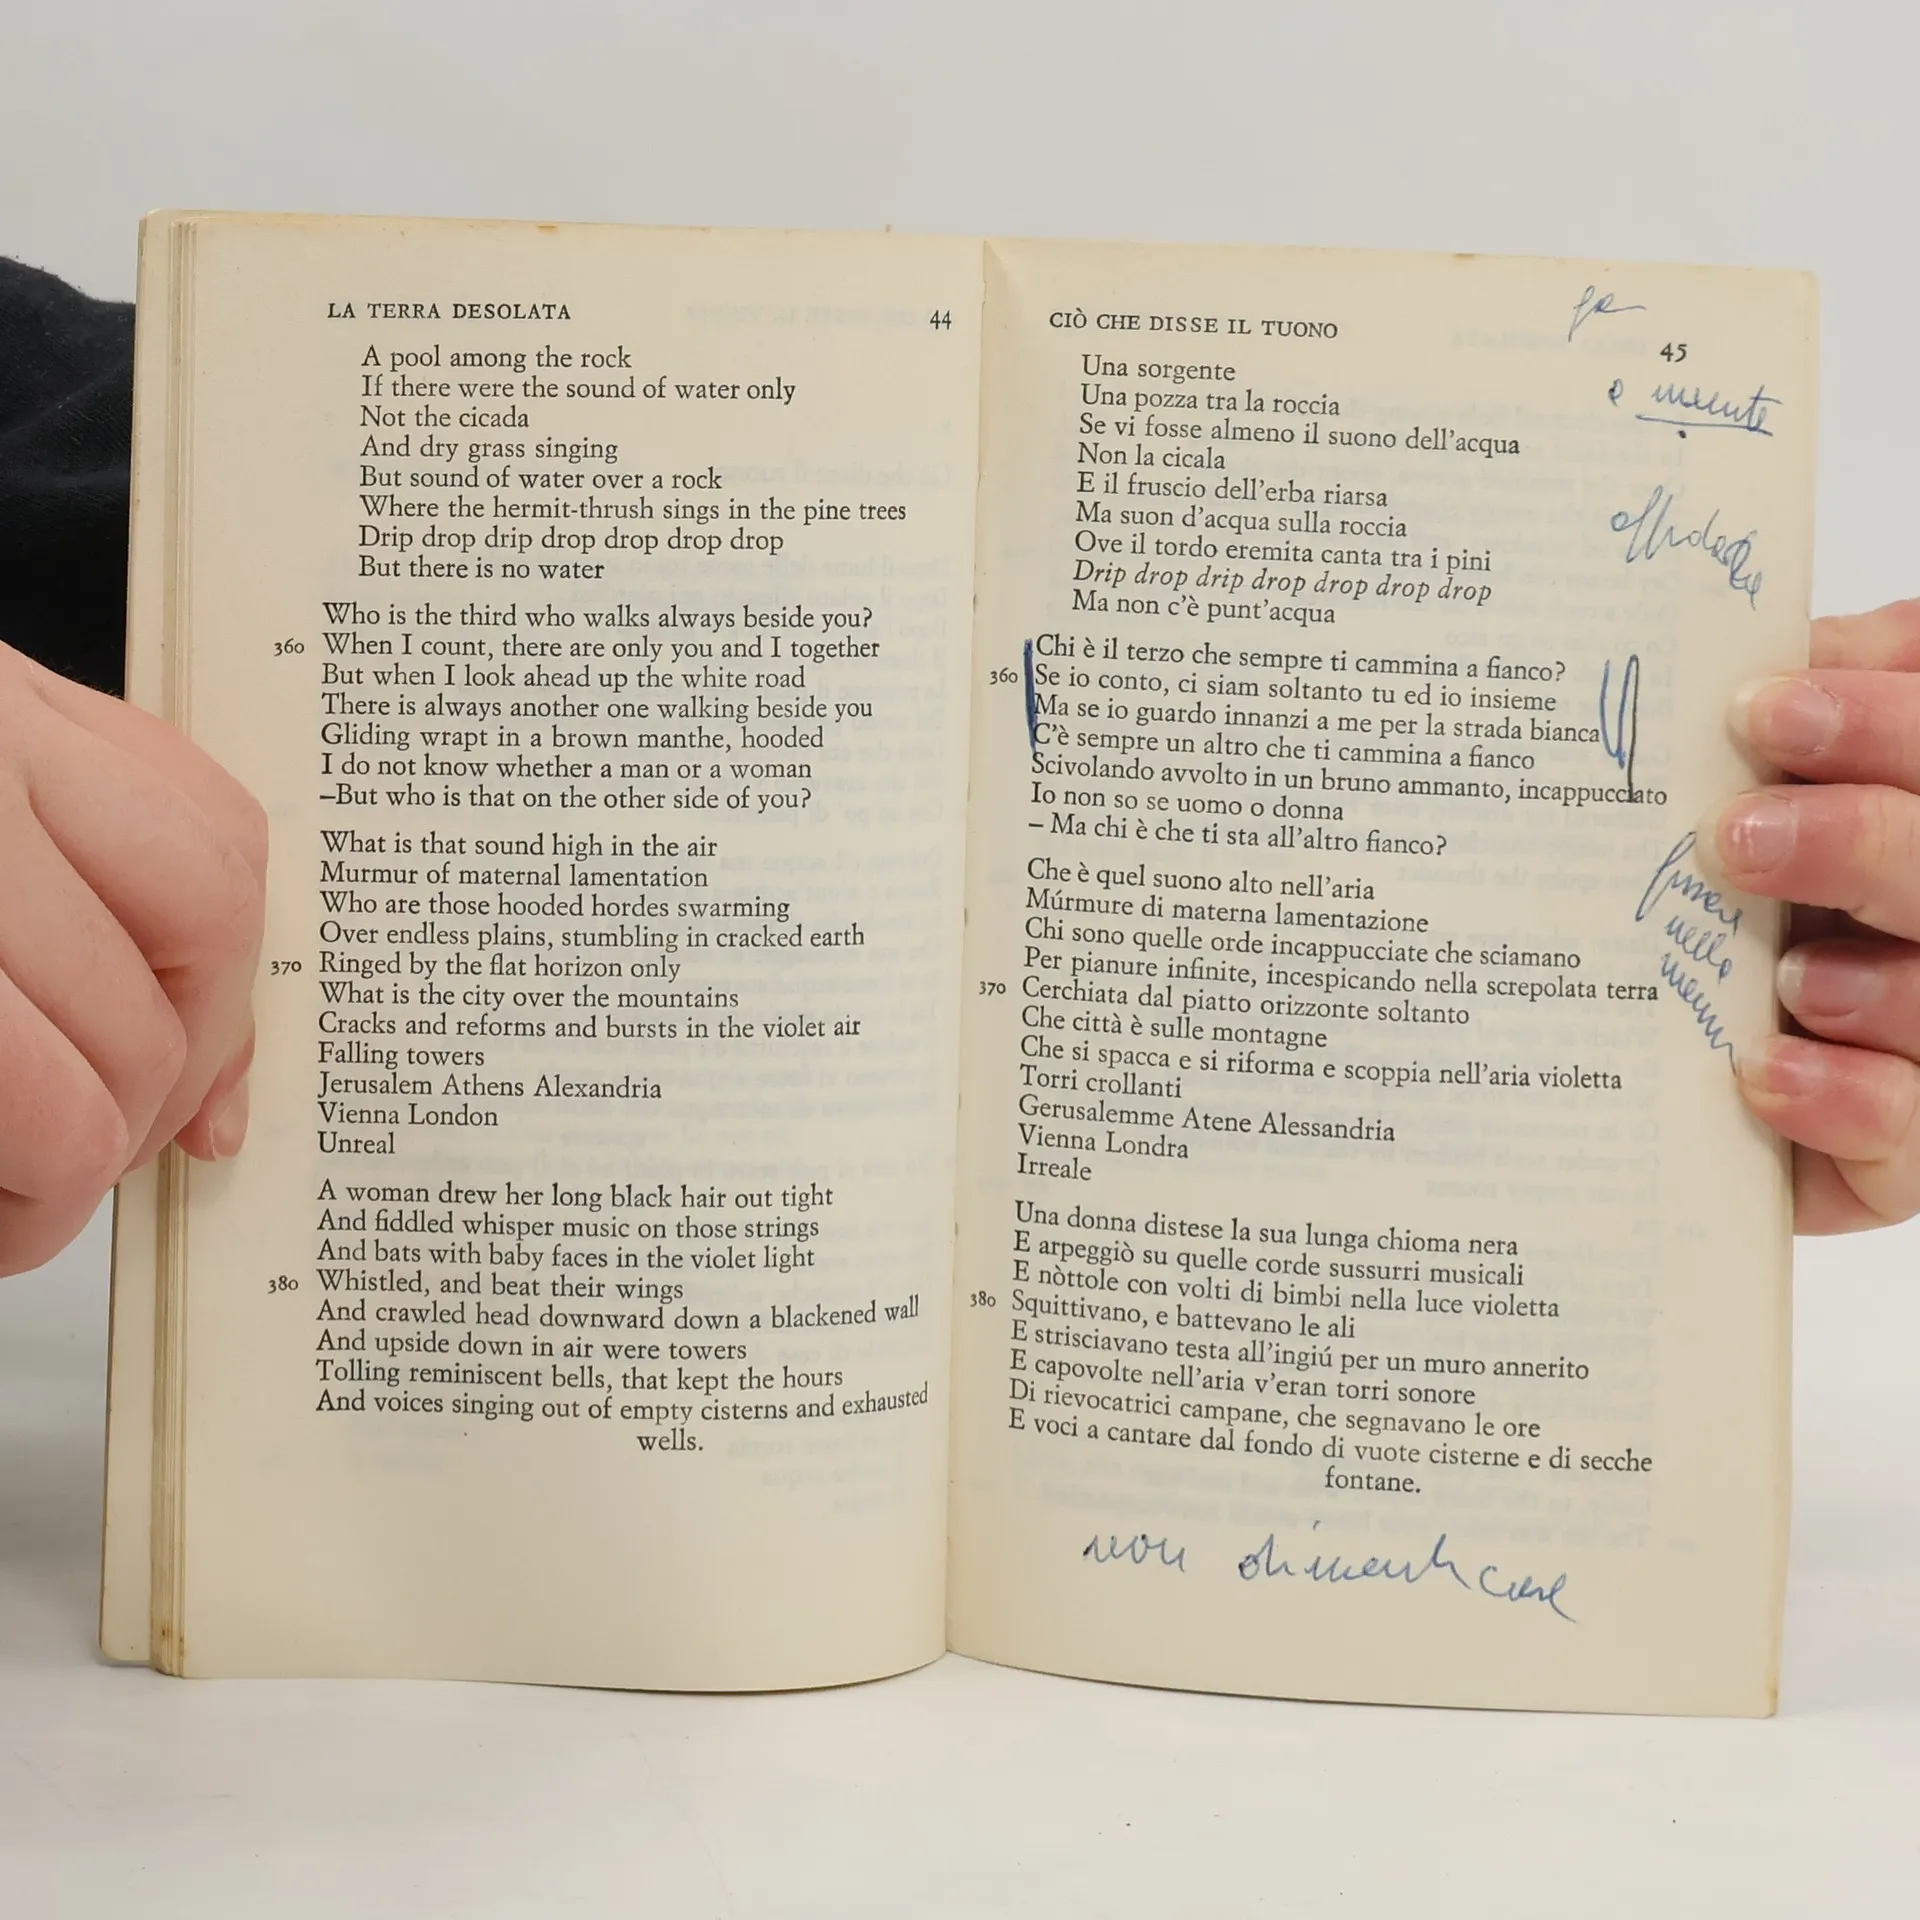 LA TERRA DESOLATA 44
A pool among the rock
If there were the sound of water only
Not the cicada
And dry grass singing
But sound of water over a rock
Where the hermit-thrush sings in the pine trees
Drip drop drip drop drop drop drop
But there is no water
Who is the third who walks always beside you?
360 When I count, there are only you and I together
But when I look ahead up the white road
There is always another one walking beside you
Gliding wrapt in a brown manthe, hooded
I do not know whether a man or a woman
–But who is that on the other side of you?
What is that sound high in the air
Murmur of maternal lamentation
Who are those hooded hordes swarming
Over endless plains, stumbling in cracked earth
370 Ringed by the flat horizon only
What is the city over the mountains
Cracks and reforms and bursts in the violet air
Falling towers
Jerusalem Athens Alexandria
Vienna London
Unreal
A woman drew her long black hair out tight
And fiddled whisper music on those strings
And bats with baby faces in the violet light
380 Whistled, and beat their wings
And crawled head downward down a blackened wall
And upside down in air were towers
Tolling reminiscent bells, that kept the hours
And voices singing out of empty cisterns and exhausted
wells.
CIÒ CHE DISSE IL TUONO 45
Una sorgente
Una pozza tra la roccia
Se vi fosse almeno il suono dell'acqua
Non la cicala
E il fruscio dell'erba riarsa
Ma suon d'acqua sulla roccia
Ove il tordo eremita canta tra i pini
Drip drop drip drop drop drop drop
Ma non c'è punt'acqua
Chi è il terzo che sempre ti cammina a fianco?
360 Se io conto, ci siam soltanto tu ed io insieme
Ma se io guardo innanzi a me per la strada bianca
C'è sempre un altro che ti cammina a fianco
Scivolando avvolto in un bruno ammanto, incappucciato
Io non so se uomo o donna
– Ma chi è che ti sta all'altro fianco?
Che è quel suono alto nell'aria
Múrmure di materna lamentazione
Chi sono quelle orde incappucciate che sciamano
Per pianure infinite, incespicando nella screpolata terra
370 Cerchiata dal piatto orizzonte soltanto
Che città è sulle montagne
Che si spacca e si riforma e scoppia nell'aria violetta
Torri crollanti
Gerusalemme Atene Alessandria
Vienna Londra
Irreale
Una donna distese la sua lunga chioma nera
E arpeggiò su quelle corde sussurri musicali
E nòttole con volti di bimbi nella luce violetta
380 Squittivano, e battevano le ali
E strisciavano testa all'ingiú per un muro annerito
E capovolte nell'aria v'eran torri sonore
Di rievocatrici campane, che segnavano le ore
E voci a cantare dal fondo di vuote cisterne e di secche
fontane.
a mente
nella
non dimenticare